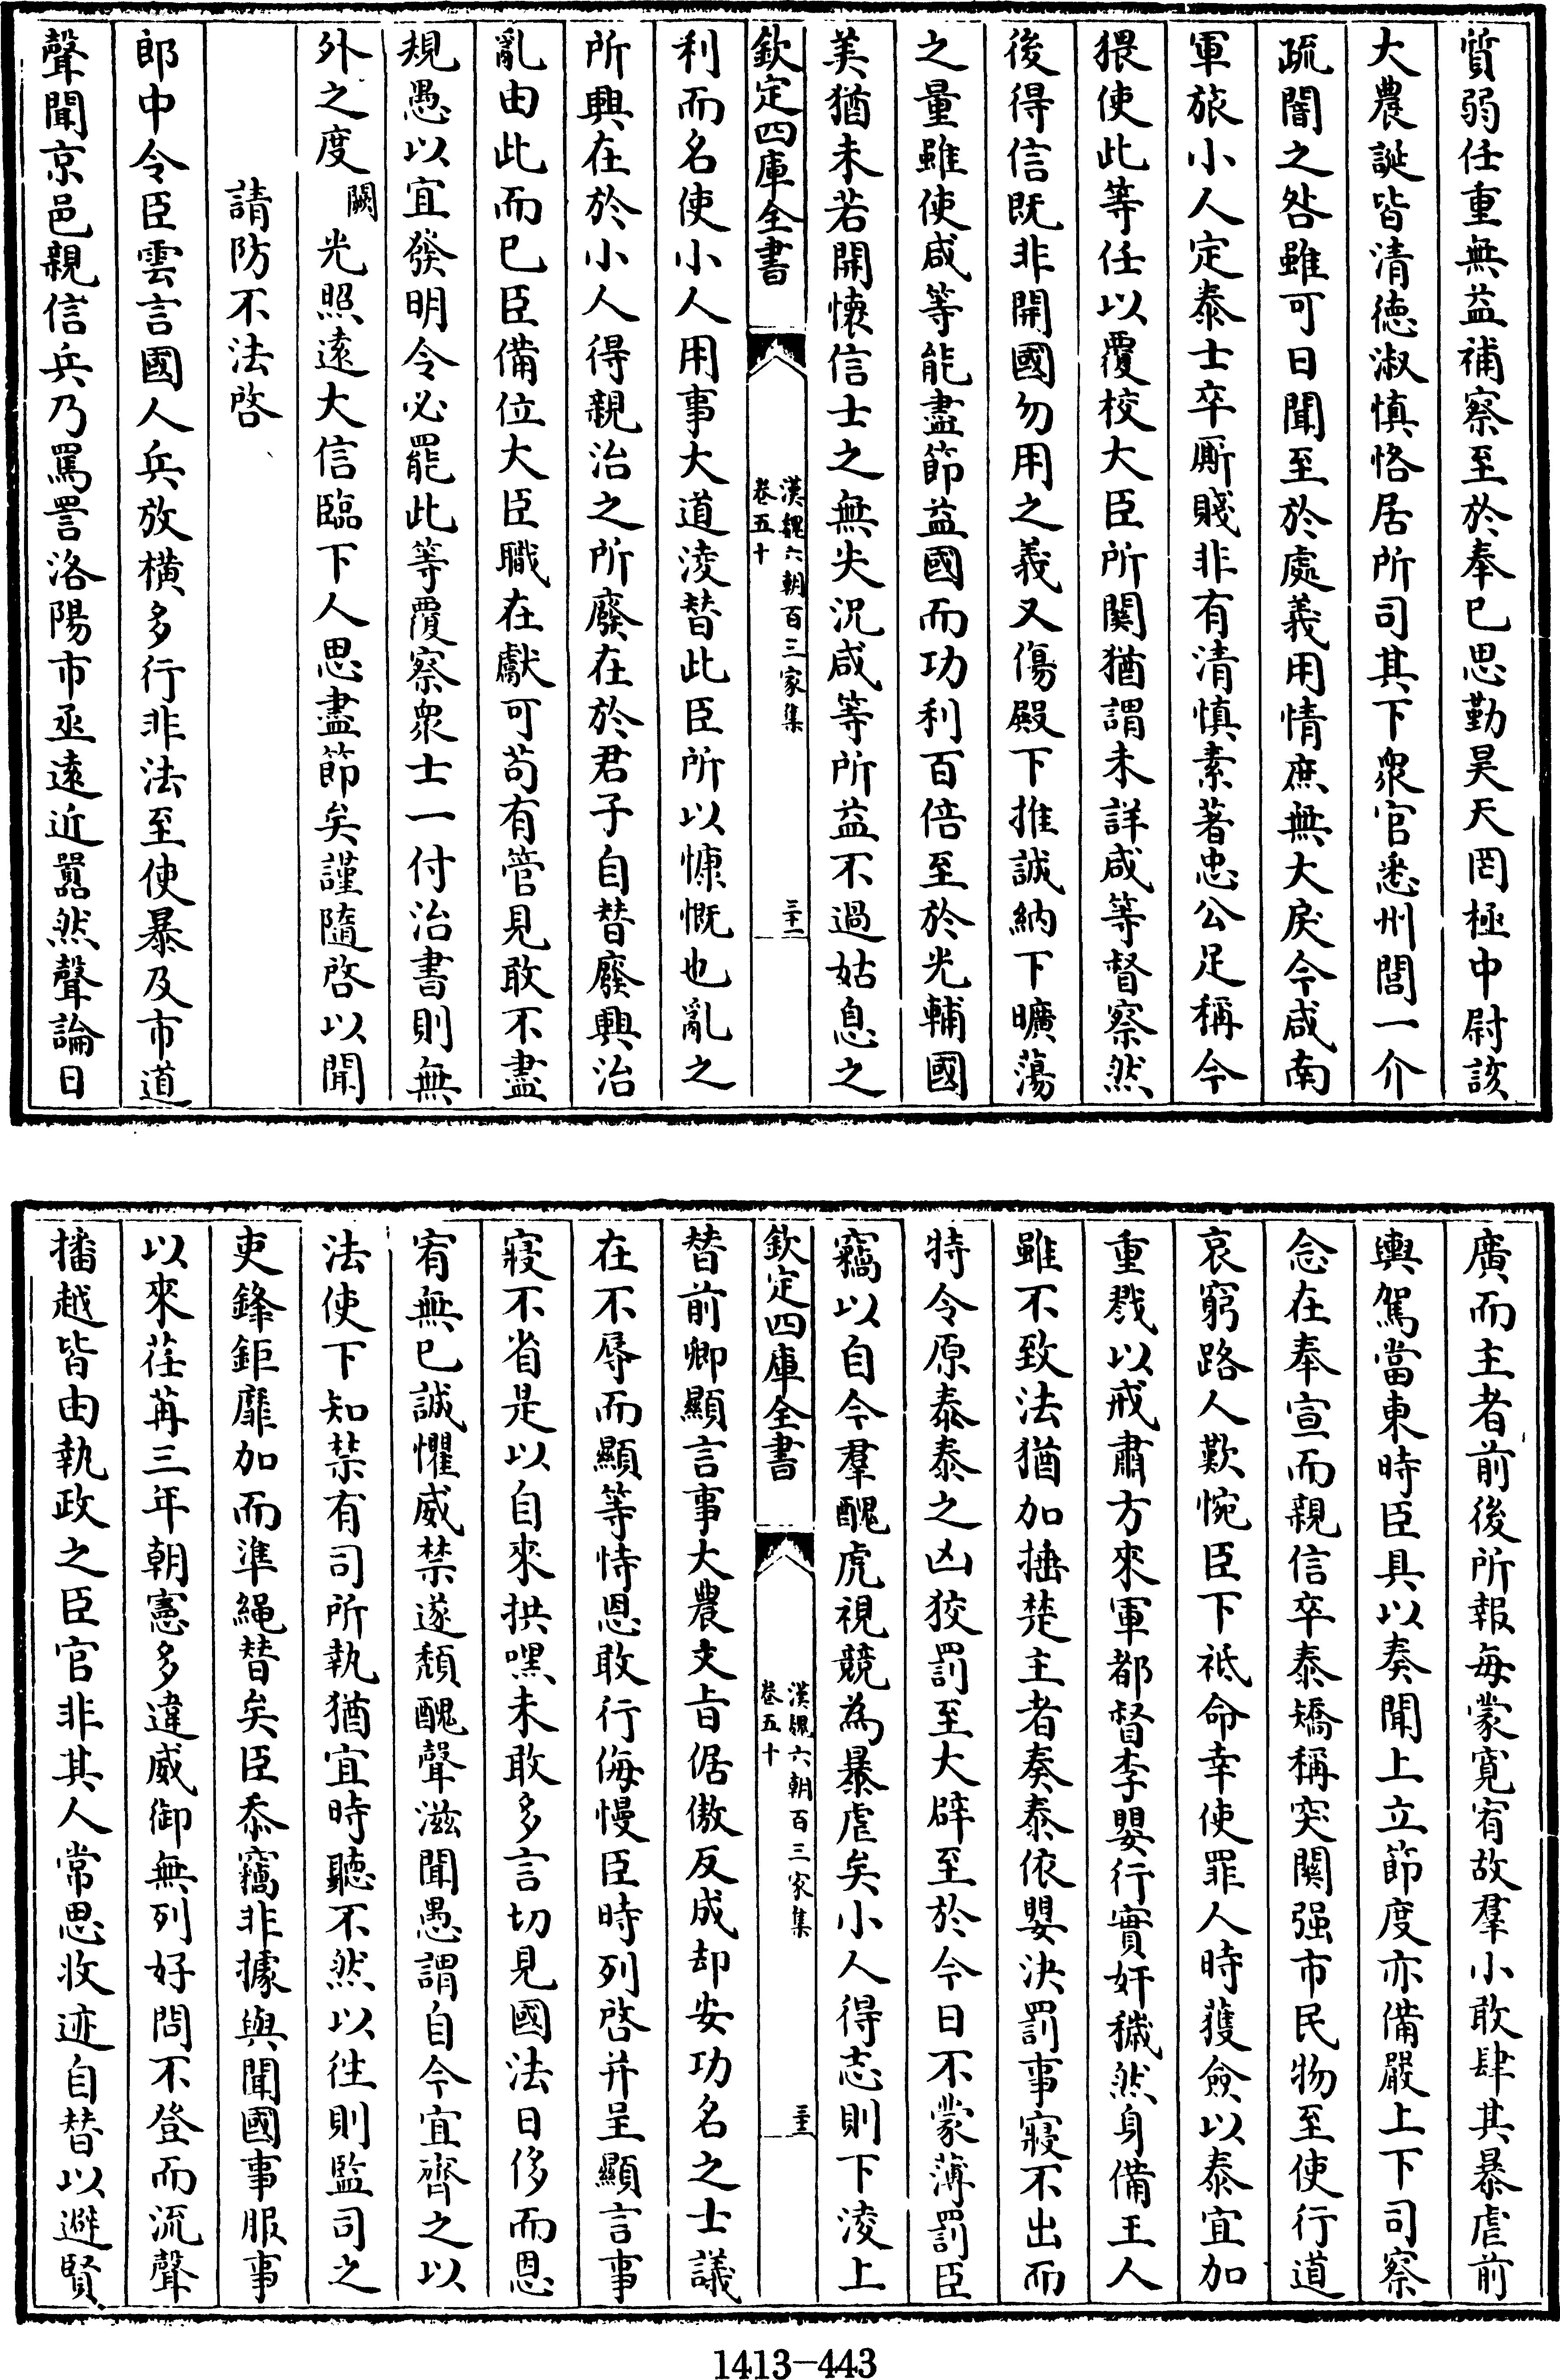 質弱任重無益補察至於奉已思勤昊天罔極中尉該
大農誕皆清德淑慎恪居所司其下衆官悉州閭一介
疏闇之咎雖可日聞至於處義用情庶無大戾今咸南
軍旅小人定泰士卒厮賤非有清慎素著忠公足稱今
猥使此等任以覆校大臣所關猶謂未詳咸等督察然
後得信既非開國勿用之義又傷殿下推誠納下曠蕩
之量雖使咸等能盡節益國而功利百倍至於光輔國
美猶未若開懐信士之無失況咸等所益不過姑息之
欽定四庫全書
漢魏六朝百三家集
卷五十
三十一
利而名使小人用事大道淩替此臣所以慷慨也亂之
所興在於小人得親治之所廢在於君子自替廢興治
亂由此而已臣備位大臣職在獻可苟有管見敢不盡
規愚以宜發明令必罷此等覆察衆士一付治書則無
外之度闕光照遠大信臨下人思盡節矣謹隨啓以聞
請防不法啓
郎中令臣雲言國人兵放横多行非法至使暴及市道
聲聞京邑親信兵乃罵詈洛陽市丞遠近囂然聲論日
廣而主者前後所報每蒙寛宥故羣小敢肆其暴虐前
輿駕當東時臣具以奏聞上立節度亦備嚴上下司察
念在奉宣而親信卒泰矯稱突關强市民物至使行道
哀窮路人歎惋臣下祗命幸使罪人時獲僉以泰宜加
重戮以戒肅方來軍都督李嬰行實奸穢然身備王人
雖不致法猶加捶楚主者奏泰依嬰決罰事寢不出而
特令原泰泰之凶狡罰至大辟至於今日不蒙薄罰臣
竊以自今羣醜虎視競為暴虐矣小人得志則下淩上
欽定四庫全書
漢魏六朝百三家集
卷五十
三十二
替前卿顯言事大農支㫖倨傲反成却安功名之士議
在不辱而顯等恃恩敢行侮慢臣時列啓并呈顯言事
寢不省是以自來拱嘿未敢多言切見國法日侈而恩
宥無已誠懼威禁遂頽醜聲滋聞愚謂自今宜齊之以
法使下知禁有司所執猶宜時聽不然以往則監司之
吏鋒鉅靡加而準繩替矣臣忝竊非據與聞國事服事
以來荏苒三年朝憲多違威御無列好問不登而流聲
播越皆由執政之臣官非其人常思收迹自替以避賢
1413-443